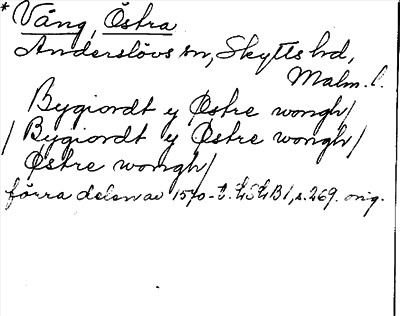 * Vång, Östra
Anderslövs sn, Skytts hd,
Malm. l.
Bygiordt y Østre wongh/
/ Bygiordt y Østre wongh/
Østre wongh/
förra delen av 1570- B1, s. 269. orig.